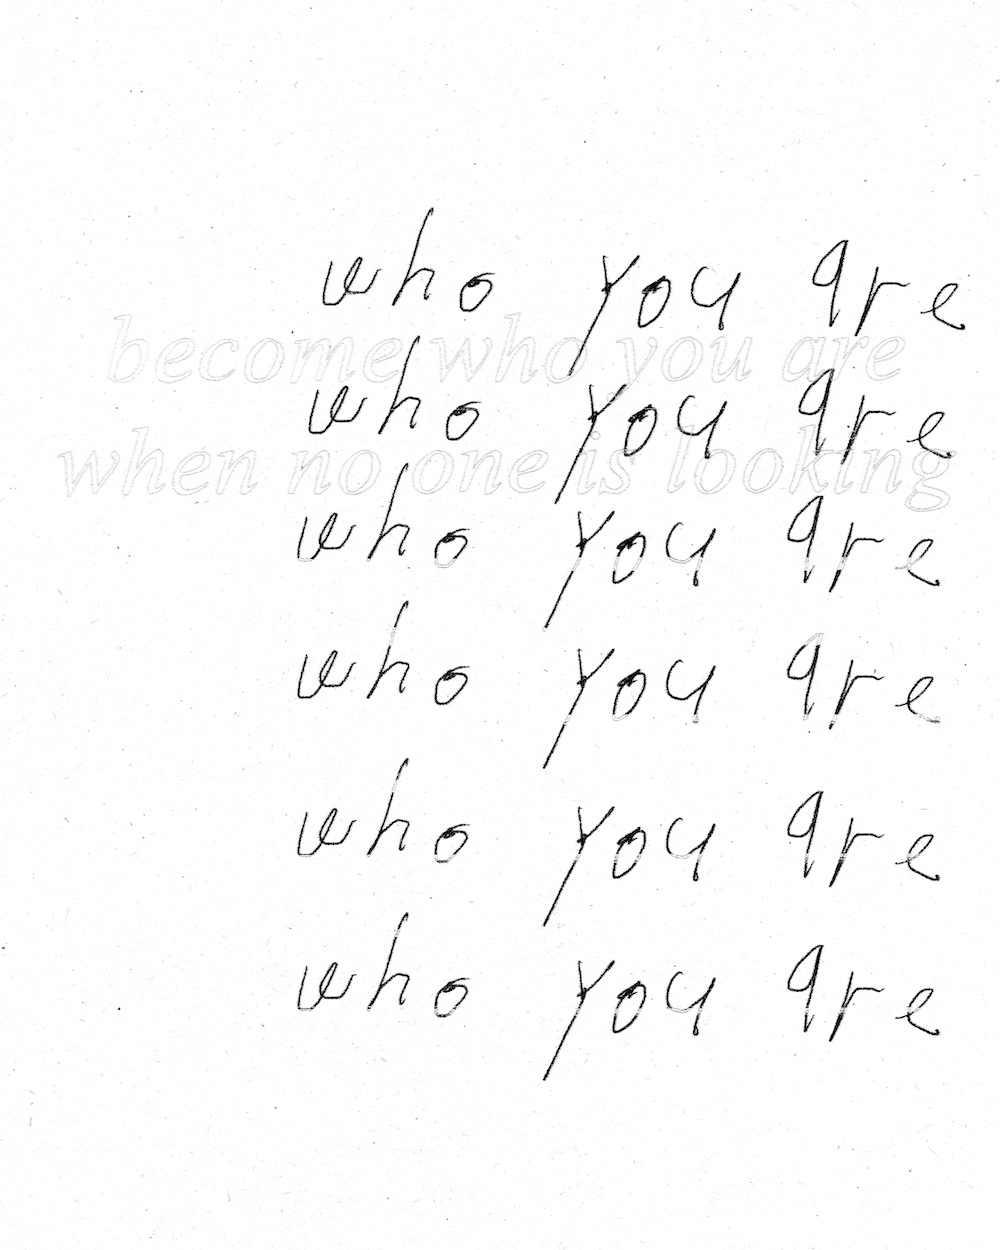 who you are
become who you are
who you are
when no one is looking
who you are
who you are
who you are
who you are